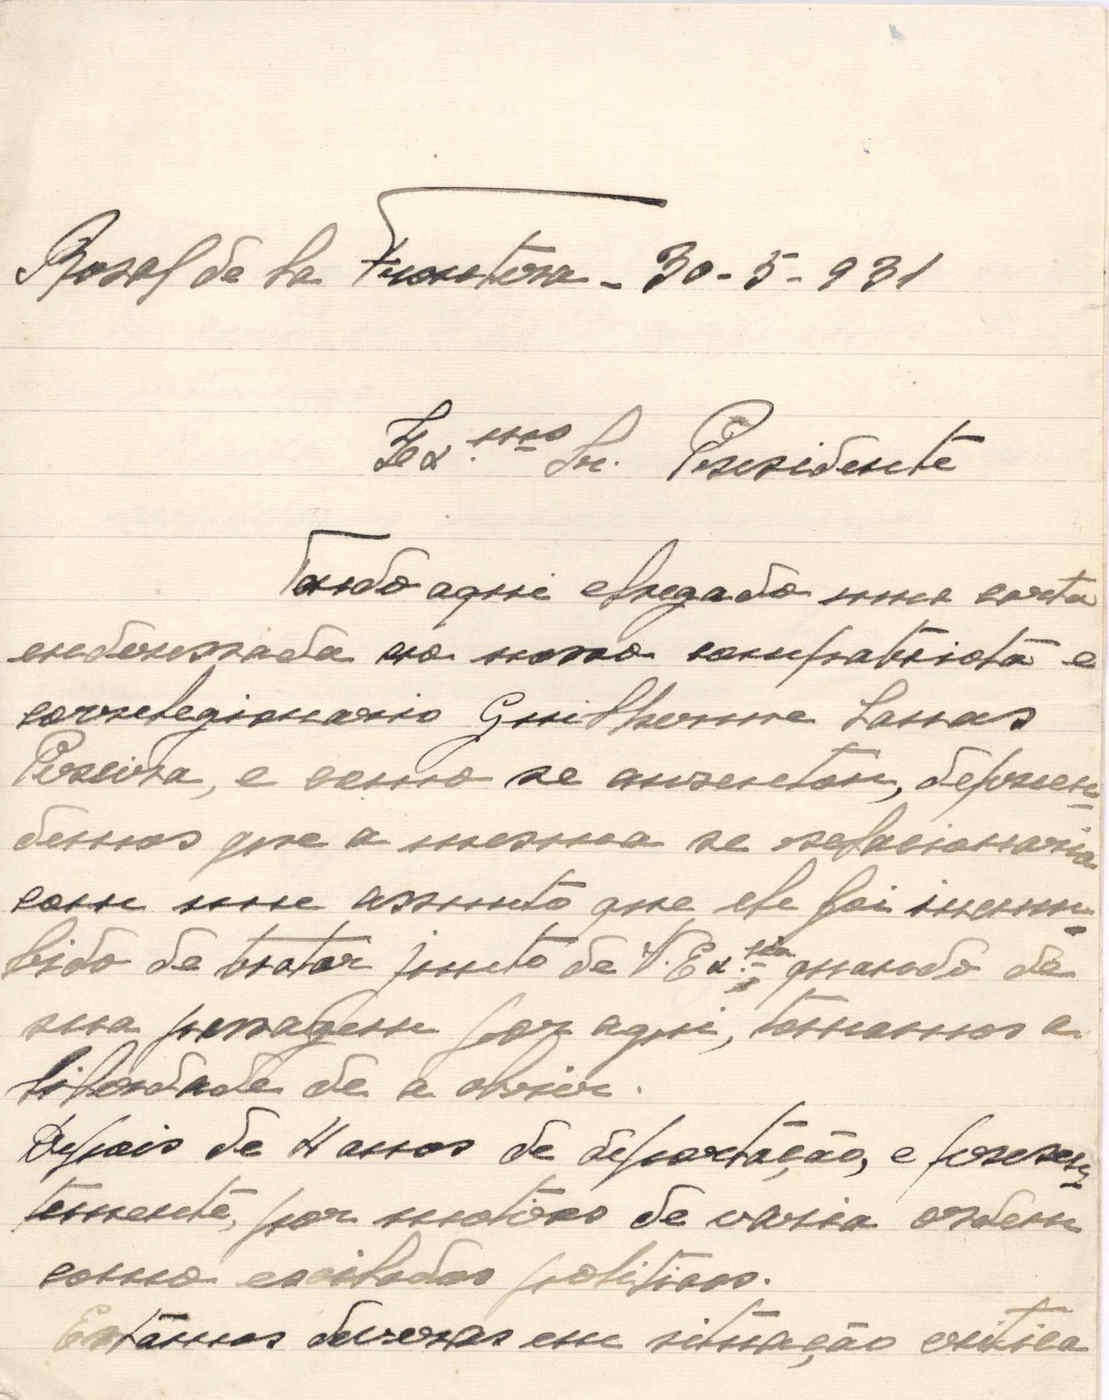 Rosal de la Frontera - 30-5-931
Ex.mo Sr. Presidente
Tendo aqui chegado uma carta
endoressada ao nosso compatriota e
correlegionario Guilherme Lanas
Pereira, e como se ausentou, depreen-
demos que a mesma se relacionaria
com um assunto que ele foi incum-
bido de tratar junto de V. Ex.cia quando de
sua passagem por aqui, tomamos a
liberdade de a abrir.
Depois de 4 anos de deportação, e presen-
temente, por motivos de varia ordem
como exilados politicos.
Estâmos deveras em situação critica